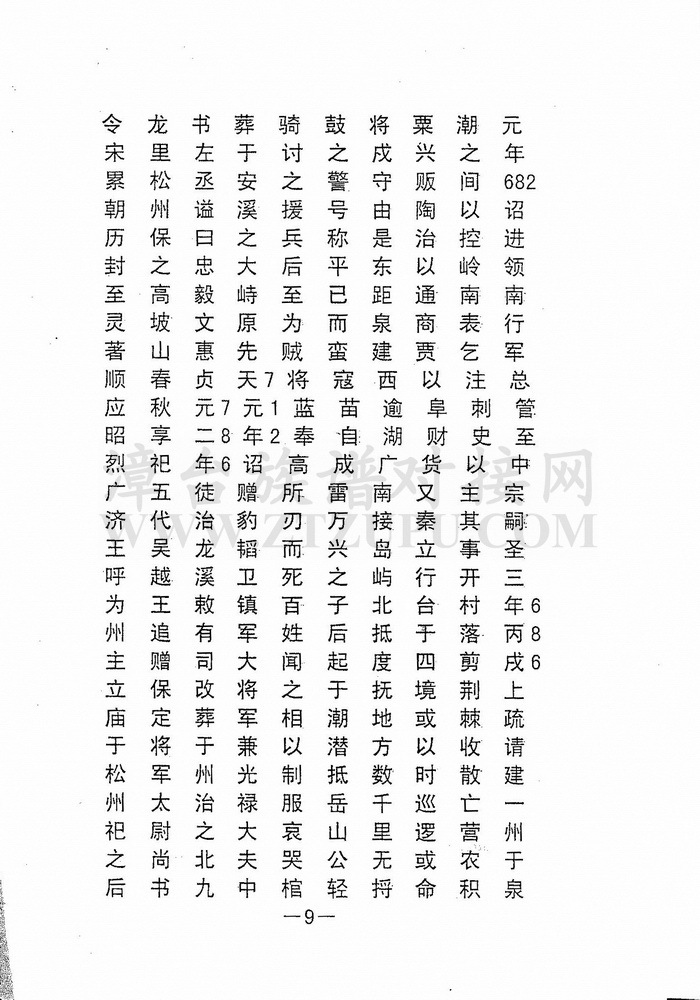 元年682诏进领南行军总管至中宗嗣圣三年686丙戌上疏请建一州于泉
潮之间以控岭南表乞注刺史以主其事开村落剪荆棘收散亡营农积
粟兴贩陶治以通商贾以阜财货又秦立行台于四境或以时巡逻或命
将戍守由是东距泉建西逾湖广南接岛屿北抵度抚地方数千里无捋
鼓之警号称平已而蛮寇苗自成雷万兴之子后起于潮潜抵岳山公轻
骑讨之援兵后至为贼将蓝奉高所刃而死百姓闻之相以制服哀哭棺
葬于安溪之大峙原先天元年712诏赠豹韬卫镇军大将军兼光禄大夫中
书左丞谥曰忠毅文惠贞元二年786徒治龙溪敕有司改葬于州治之北九
龙里松州保之高坡山春秋享祀五代吴越王追赠保定将军太尉尚书
令宋累朝历封至灵著顺应昭烈广济王呼为州主立庙于松州祀之后
—9—
漳台族谱对接网
WWW.ZTZUPU.COM